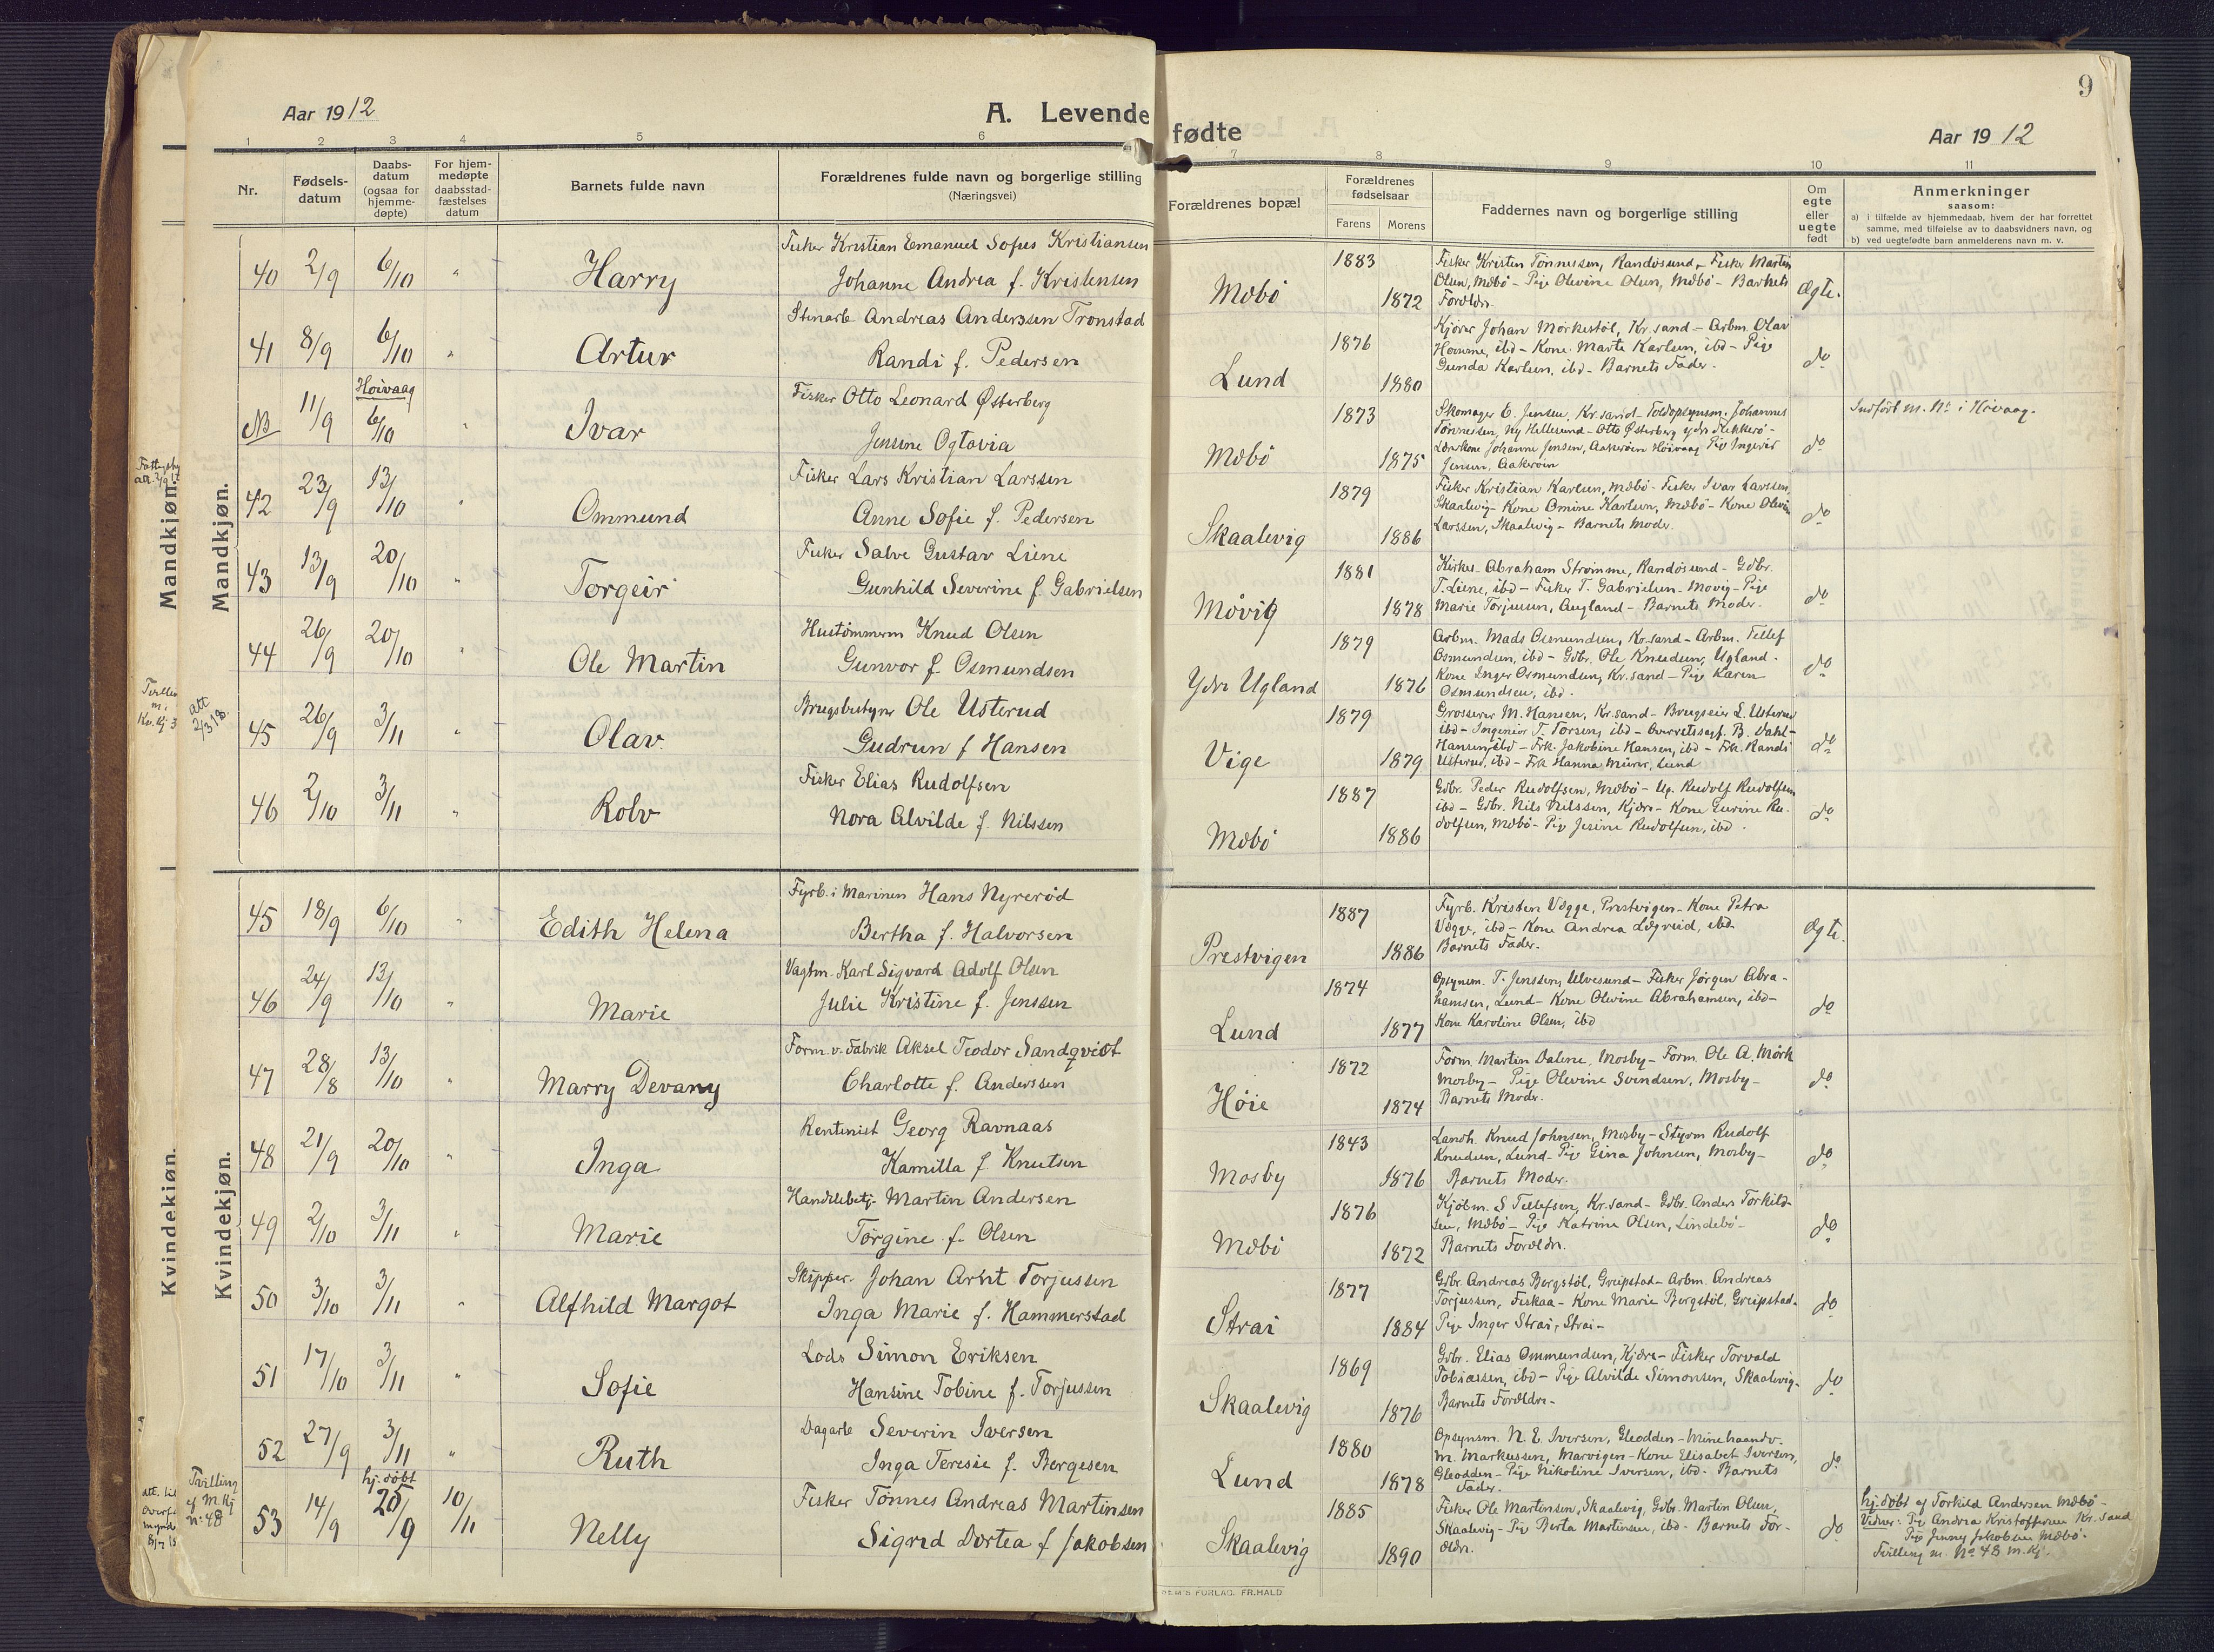 Aar 1912
A. Levende
fødte
Aar 1912
9
1 2 3 4 5 6 7 8 9 10 11
Nr.
Fødsels-
datum
Daabs-
datum
(ogsaa for
hjemme-
døpte)
For hjem-
medøpte
daabsstad-
fæstelses
datum
Barnets fulde navn
Forældrenes fulde navn og borgerlige stilling
(Næringsvei)
Forældrenes bopæl
Forældrenes
fødselsaar
Farens Morens
Faddernes navn og borgerlige stilling
Om
egte
eller
uegte
født
Anmerkninger
saasom:
a) i tilfælde av hjemmedaab, hvem der har forrettet
samme, med tilføielse av to daabsvidners navn, og
b) ved uegtefødte barn anmelderens navn m. v.
Mandkjøn.
Mandkjøn.
40 2/9 6/10 " Harry
Fisker Kristian Emanuel Sofus Kristiansen
Johanne Andrea f. Kristensen
Mæbø 1883 1872
Fisker Kristen Tönnessen, Randøsund - Fisker Martin
Olsen, Mæbø - Pige Olevine Olsen, Mæbø - Barnets
Forældr.
Ægte.
41 8/9 6/10 " Artur
Stenarb Andreas Anderssen Tronstad
Randi f. Pedersen
Lund 1876 1880
Kjører Johan Mörkestöl, Kr.sand - Arbm. Olav
Homme, ibd - Kone Marte Karlsen, ibd - Pige
Gunda Karlsen, ibd - Barnets Fader.
do
NB 11/9 Høivaag 6/10 " Ivar
Fisker Otto Leonard Østerberg
Jensine Ogtavia
Mæbø 1873 1875
Skomager E. Jensen, Kr.sand - Toldopsynsm. Johannes
Tönnesen, Ny Hellesund - Otto Østerberg ydr Flekkerö -
Johanne Jensen, Aakerøen Höivaag Pig Ingevar
Jensen, Aakerøen
do
Indført m. No i Høivaag.
42 23/9 13/10 " Ommund
Fisker Lars Kristian Larssen
Anne Sofie f. Pedersen
Skaalevig 1879 1886
Fisker Kristian Karlsen, Mæbø - Fisker Ivar Larssen,
Skaalevig - Kone Omine Karlsen, Mæbø - Kone Olevin
Larssen, Skaalevig - Barnets Moder.
do
43 13/9 20/10 " Torgeir
Fisker Salve Gustav Liene
Gunhild Severine f. Gabrielsen
Møvig 1881 1878
Kirkes. Abraham Strømme, Randøsund - Gdbr.
T. Liene, ibd - Fisker T. Gabrielsen Møvig - Pige
Marie Torjussen, Augland - Barnets Moder.
do
44 26/9 20/10 " Ole Martin
Hustömmerm Knud Olsen
Gunvor f. Osmundsen
Ydre Ugland 1879 1876
Arbm. Mads Osmundsen, Kr.sand - Arbm. Tellef
Osmundsen, ibd - Gdbr. Ole Knudsen, Ugland -
Kone Inger Osmundsen, Kr.sand - Pige Karen
Osmundsen, ibd.
do
45 26/9 3/11 " Olav
Brugsbestyrer Ole Usterud
Gudrun f Hansen
Vige 1879 1879
Grosserer M. Hansen, Kr.sand - Brugseier L. Usterud
ibd - Ingeniør T. Torsen, ibd - Overretssagf. B. Dahl-
Hansen, ibd - Frk. Jakobine Hansen, ibd - Frk. Randi
Usterud, ibd - Frk Hanna Mürer, Lund
do
46 2/10 3/11 " Rolv
Fisker Elias Rudolfsen
Nora Alvilde f. Nilssen
Mæbø 1887 1886
Gdbr. Peder Rudolfsen, Mæbø - Ug. Rudolf Rudolfsen
ibd - Gdbr. Nils Nilssen, Kjære - Kone Gurine Ru-
dolfsen, Mæbø - Pige Jesine Rudolfsen, ibd.
do
Kvindekjøn.
Kvindekjøn.
45 18/9 6/10 " Edith Helena
Fyrb. i Marinen Hans Nyreröd
Bertha f. Halvorsen
Prestvigen 1887 1886
Fyrb. Kristen Vægge, Prestvigen - Kone Petra
Vægge, ibd - Kone Andrea Lægreid, ibd.
Barnets Fader.
Ægte.
46 24/9 13/10 " Marie
Vagtm. Karl Sigvard Adolf Olsen
Julie Kristine f. Jenssen
Lund 1874 1877
Opsynsm. T. Jenssen, Ulvesund - Fisker Jørgen Abra-
hamsen, Lund - Kone Olevine Abrahamsen, ibd -
Kone Karoline Olsen, ibd
do
47 28/8 13/10 " Marry Devany
Form. v. Fabrik Aksel Teodor Sandqvist
Charlotte f. Anderssen
Høie 1872 1874
Form. Martin Dalene, Mosby - Form. Ole A. Mörk
Mosby - Pige Olevine Svendsen, Mosby -
Barnets Moder.
do
48 21/9 20/10 " Inga
Rentenist Georg Ravnaas
Kamilla f. Knutsen
Mosby 1843 1876
Landh. Knud Johnsen, Mosby - Styrm Rudolf
Knudsen, Lund - Pige Gina Johnsen, Mosby -
Barnets Moder.
do
49 2/10 3/11 " Marie
Handelsbetj. Martin Andersen
Torgine f. Olsen
Mæbø 1876 1872
Kjöbm. S Tellefsen, Kr.sand - Gdbr. Anders Torkild-
sen, Mæbø - Pige Katrine Olsen, Lindebø -
Barnets Forældr.
do
50 3/10 3/11 " Alfhild Margot
Skipper. Johan Arnt Torjussen
Inga Marie f. Hammerstad
Strai 1877 1884
Gdbr. Andreas Bergstöl, Greipstad - Arbm. Andreas
Torjussen, Fiskaa - Kone Marie Bergstöl, Greipstad -
Pige Inger Strai, Strai -
do
51 17/10 3/11 " Sofie
Lods Simon Eriksen
Hansine Tobine f. Torjussen
Skaalevig 1869 1876
Gdbr. Elias Ommundsen, Kjære - Fisker Torvald
Tobiassen, ibd - Pige Alvilde Simonsen, Skaalevig -
Barnets Forældre -
do
52 27/9 3/11 " Ruth
Dagarb Severin Iversen
Inga Teresie f. Børgesen
Lund 1880 1878
Opsynsm. N. E. Iversen, Gleodden - Minehaandv.
M. Markussen, Marvigen - Kone Elisabet Iversen,
Gleodden - Pige Nikoline Iversen, ibd. - Barnets
Fader.
do
53 14/9 hj. døbt 20/9 10/11 Nelly
Fisker Tönnes Andreas Martinsen
Sigrid Dortea f Jakobsen
Skaalevig 1885 1890
Fisker Ole Martinsen, Skaalevig, Gdbr. Martin Olsen,
Skaalevig - Pige Berta Martinsen, ibd - Barnets For-
ældr.
do
hj. døbt af Torkild Andersen Mæbø -
Vidner: Pig Andrea Kristoffersen Kr.sand
Pige Jenny Jakobsen Mæbø -
Tvilling m. No 48 m. kj.
Tvilling
af M. Kj
No 48
att
2/3 13.
FORLAG. FR. HALD